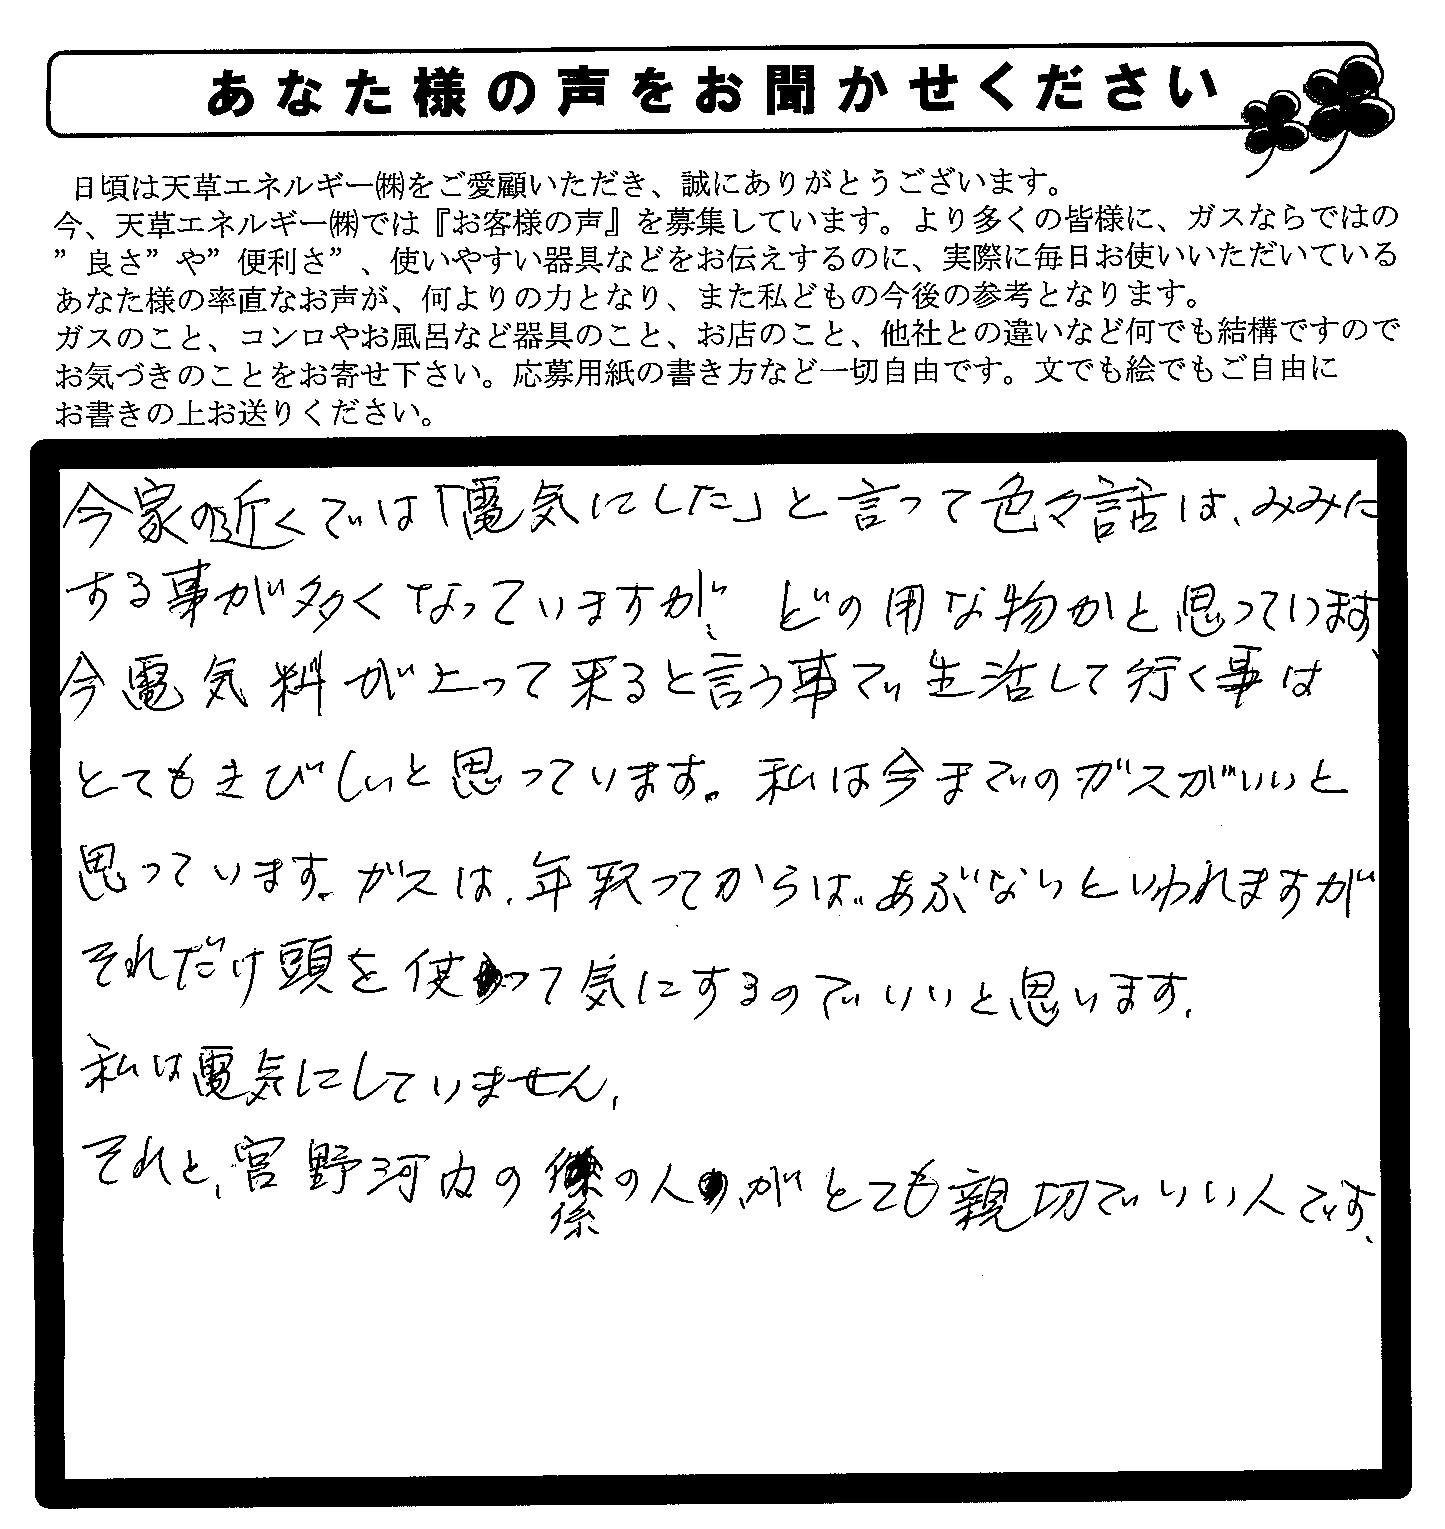 あなた様の声をお聞かせください
日頃は天草エネルギー㈱をご愛顧いただき、誠にありがとうございます。
今、天草エネルギー㈱では『お客様の声』を募集しています。より多くの皆様に、ガスならではの
”良さ”や”便利さ”、使いやすい器具などをお伝えするのに、実際に毎日お使いいただいている
あなた様の率直なお声が、何よりの力となり、また私どもの今後の参考となります。
ガスのこと、コンロやお風呂など器具のこと、お店のこと、他社との違いなど何でも結構ですので
お気づきのことをお寄せ下さい。応募用紙の書き方など一切自由です。文でも絵でもご自由に
お書きの上お送りください。
今家の近くでは「電気にした」と言って色々話は、みみに
する事が多くなっていますが、どの用な物かと思っています、
今電気料が上って来ると言う事で生活して行く事は
とてもきびしいと思っています。私は今までのガスがいいと
思っています。ガスは、年取ってからは、あぶないといわれますが
それだけ頭を使って気にするのでいいと思います、
私は電気にしていません、
それと、宮野河内の係の人が、とても親切でいい人です、